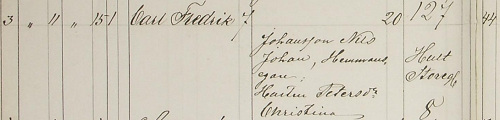 3 " 11 " 151 Carl Fredrik 20 127 44
Johansson Nils
Johan, Hemmans
egare; Hult
Storeg
Hustru Petersdr
Christina 8